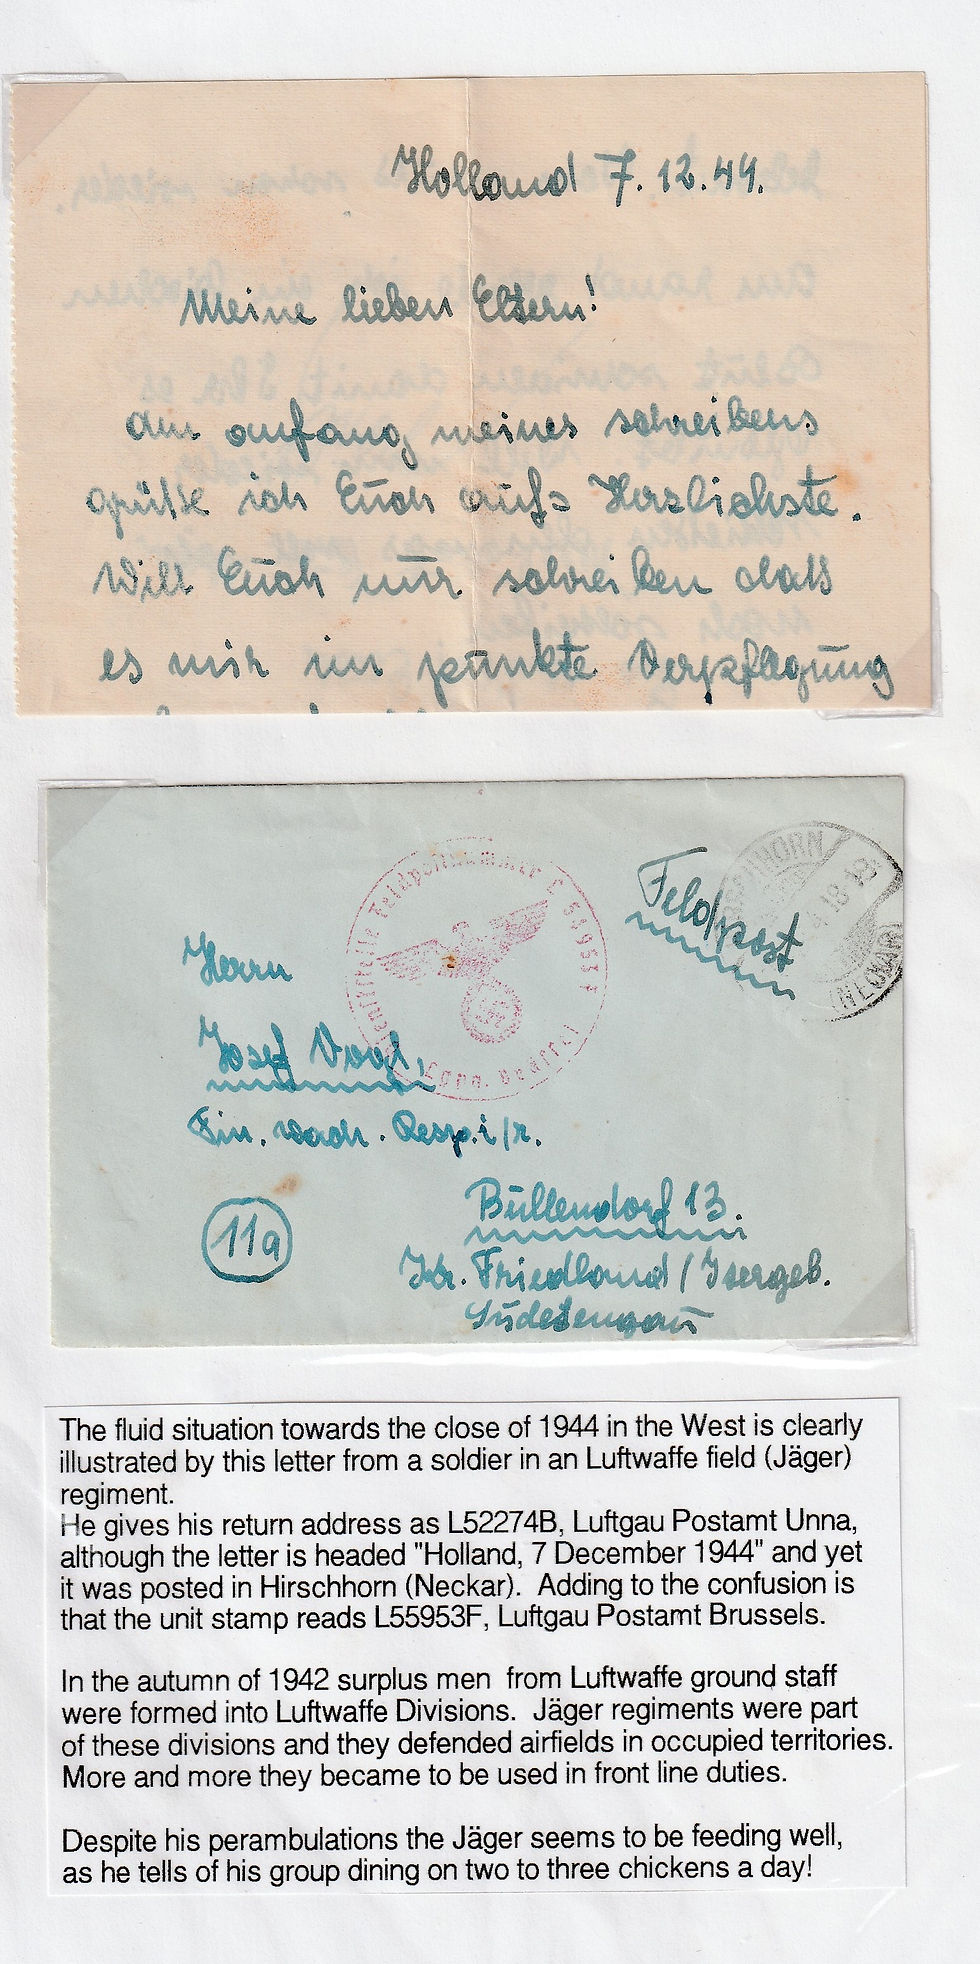 Holland 7.12.44.
Meine lieben Eltern!
Am anfang meines schreibens
grüße ich Euch aufs Herzlichste.
Will Euch nur schreiben daß
es mir im punkte Verpflegung
Feldpost
Herrn
Josef Vogl,
Fin. wach. Resp. i/r.
11a
Büllendorf 13.
Kr. Friedland / Isergeb.
Sudetengau
HIRSCHHORN
(NECKAR)
Feldpostnummer L
The fluid situation towards the close of 1944 in the West is clearly
illustrated by this letter from a soldier in an Luftwaffe field (Jäger)
regiment.
He gives his return address as L52274B, Luftgau Postamt Unna,
although the letter is headed "Holland, 7 December 1944" and yet
it was posted in Hirschhorn (Neckar).  Adding to the confusion is
that the unit stamp reads L55953F, Luftgau Postamt Brussels.
In the autumn of 1942 surplus men  from Luftwaffe ground staff
were formed into Luftwaffe Divisions.  Jäger regiments were part
of these divisions and they defended airfields in occupied territories.
More and more they became to be used in front line duties.
Despite his perambulations the Jäger seems to be feeding well,
as he tells of his group dining on two to three chickens a day!